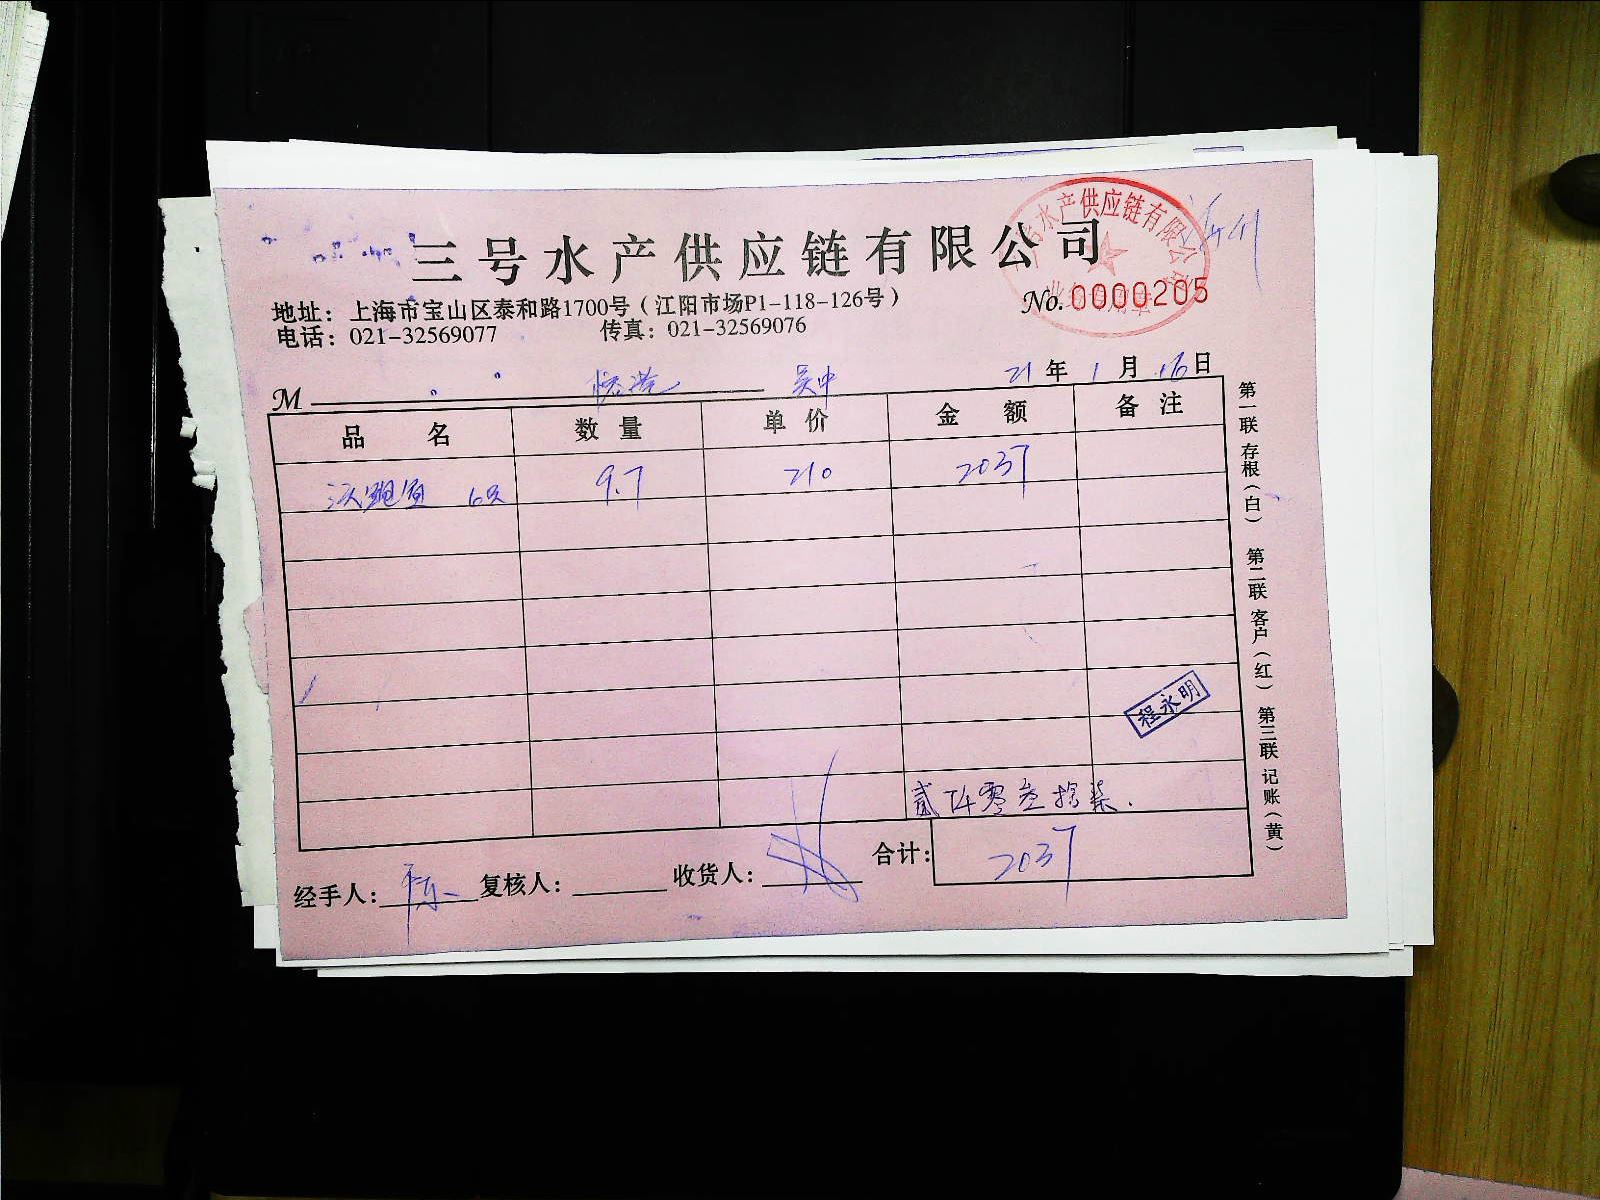 三号水产供应链有限公司
地址：上海市宝山区泰和路1700号（江阳市场P1-118-126号）
电话：021-32569077 传真：021-32569076
No.0000205
水产供应链有限公司
M 吴中 21年1月16日
品名 数量 单价 金额 备注
6只 9.7 210 2037
程永明
贰仟零叁拾柒.
合计：2037
经手人： 复核人： 收货人：
第一联 存根（白） 第二联 客户（红） 第三联 记账（黄）